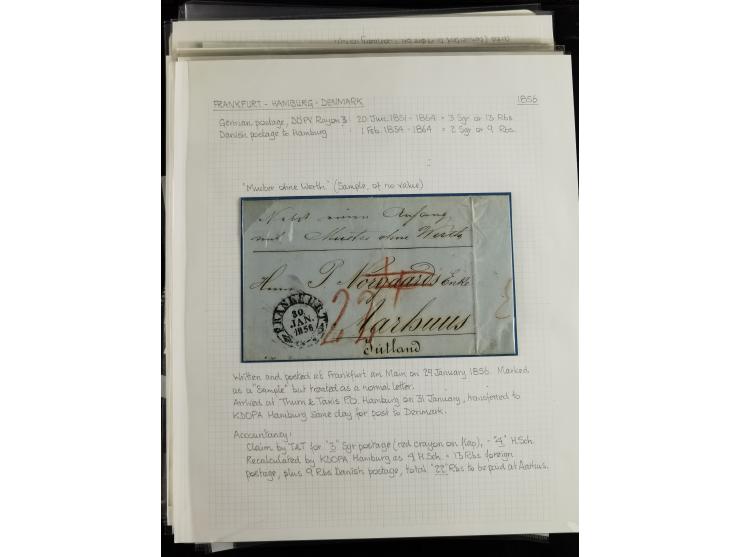 FRANKFURT - HAMBURG - DENMARK 1856
German postage, DÖPV Rayon 3: 20 Jun. 1851 - 1864 = 3 Sgr or 13 Rbs.
Danish postage to Hamburg : 1 Feb. 1854 - 1864 = 2 Sgr or 9 Rbs.
"Muster ohne Werth" (Sample, of no value)
Nebst einem Anhang
mit Muster ohne Werth
Herrn P. Norgaards Enke
22
Aarhuus
Jütland
FRANKFURT
30.
JAN.
1856
Written and posted at Frankfurt am Main on 29 January 1856. Marked
as a "Sample" but treated as a normal letter.
Arrived at Thurn & Taxis P.O. Hamburg on 31 January, transferred to
KDOPA Hamburg same day for post to Denmark.
Accountancy:
Claim by T&T for "3" Sgr postage (red crayon on flap), = "4" H.Sch.
Recalculated by KDOPA Hamburg as 4 H.Sch. = 13 Rbs foreign
postage, plus 9 Rbs Danish postage, total "22" Rbs to be paid at Aarhus.